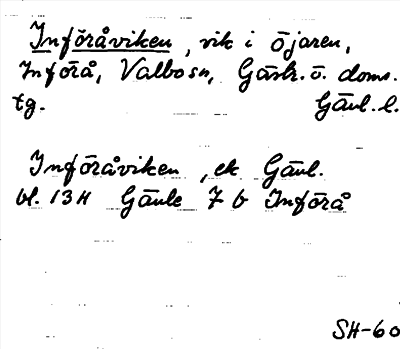 Införåviken, vik i Öjaren,
Införå, Valbo sn, Gästr. ö. doms.
tg. Gävl. l.
Införåviken, ek Gävl.
bl. 13H Gävle 7 b Införå
SH-60